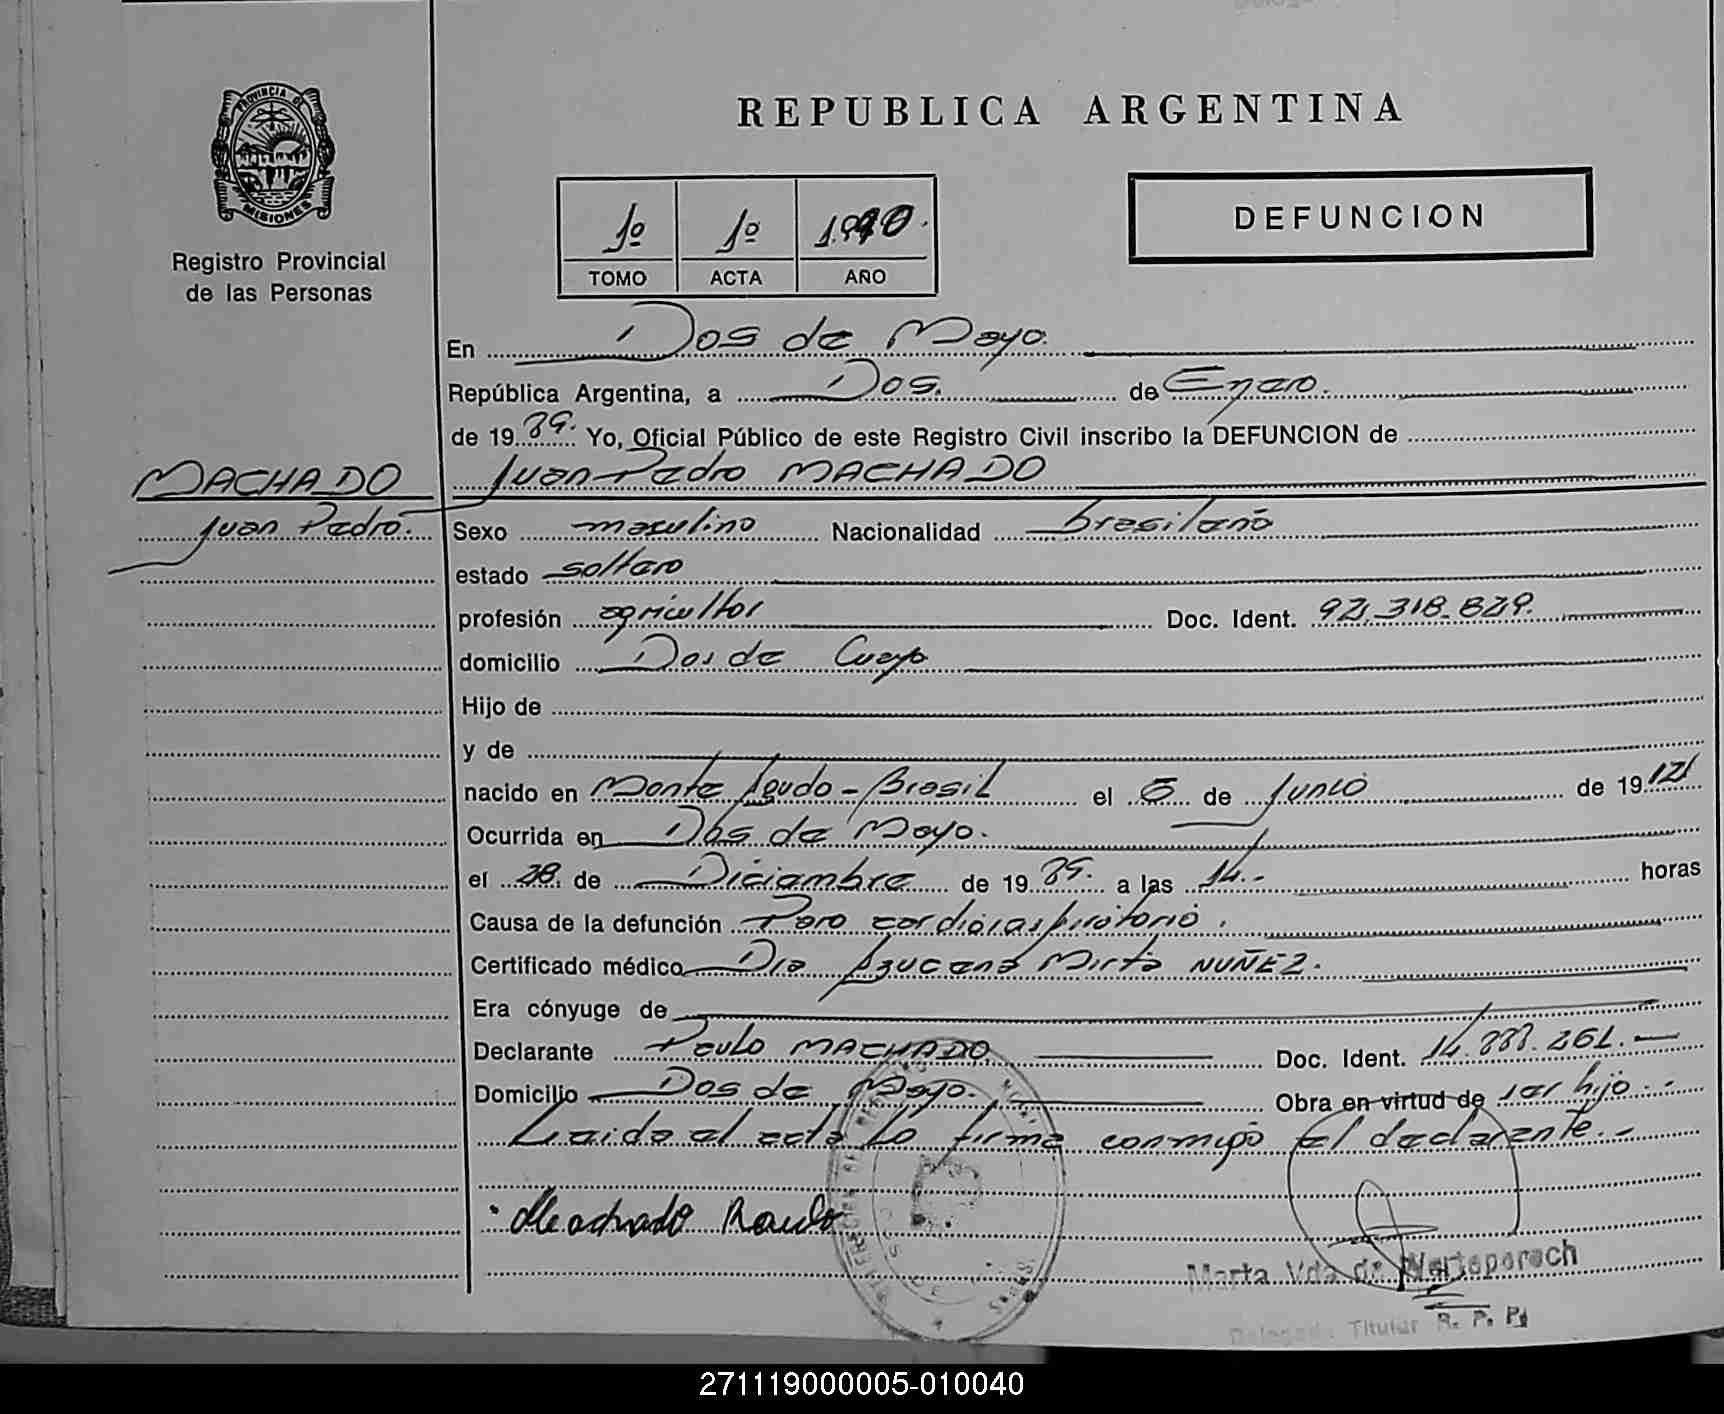 REPUBLICA ARGENTINA
PROVINCIA DE
MISIONES
Registro Provincial
de las Personas
1º 1º 1.990.
TOMO ACTA AÑO
DEFUNCION
En Dos de Mayo.
República Argentina, a Dos. de Enero.
de 19 89. Yo, Oficial Público de este Registro Civil inscribo la DEFUNCION de
MACHADO
Juan Pedro.
Juan Pedro MACHADO
Sexo masculino Nacionalidad brasileño
estado soltero
profesión agricultor Doc. Ident. 92.318.829.
domicilio Dos de Cuayo
Hijo de
y de
nacido en Monte Agudo - Brasil el 5 de Junio de 19 121
Ocurrida en Dos de Mayo.
el 28. de Diciembre de 19 89. a las 14.- horas
Causa de la defunción Paro cardiorespiratorio.
Certificado médico Dra Azucena Mirta NUÑEZ.
Era cónyuge de
Declarante Paulo MACHADO Doc. Ident. 14.888.261.-
Domicilio Dos de Mayo. Obra en virtud de ser hijo.-
Leida el acta lo firma conmigo el declarante.-
Machado Raulo
Marta Vda de
Titular R. P. P.
271119000005-010040